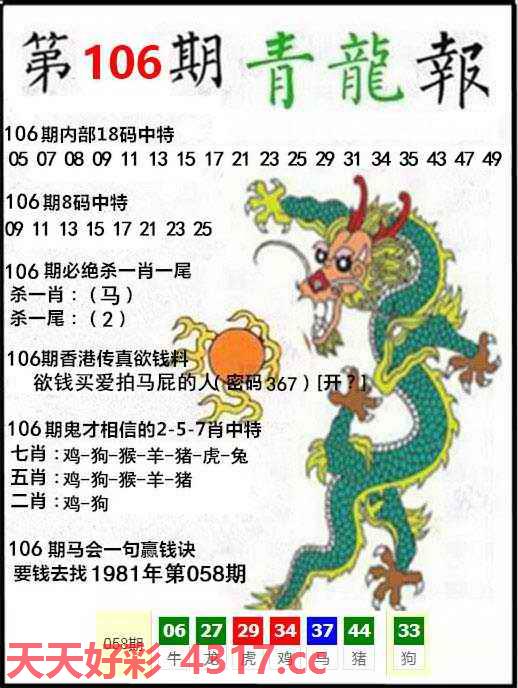 第106期 青龍報
106期内部18码中特
05 07 08 09 11 13 15 17 21 23 25 29 31 34 35 43 47 49
106期8码中特
09 11 13 15 17 21 23 25
106期必绝杀一肖一尾
杀一肖：（马）
杀一尾：（2）
106期香港传真欲钱料
欲钱买爱拍马屁的人(密码367)[开？]
106期鬼才相信的2-5-7肖中特
七肖：鸡-狗-猴-羊-猪-虎-兔
五肖：鸡-狗-猴-羊-猪
二肖：鸡-狗
106期马会一句赢钱诀
要钱去找1981年第058期
058期 06 27 29 34 37 44 33
牛 龙 虎 鸡 马 猪 狗
天天好彩-4317.cc